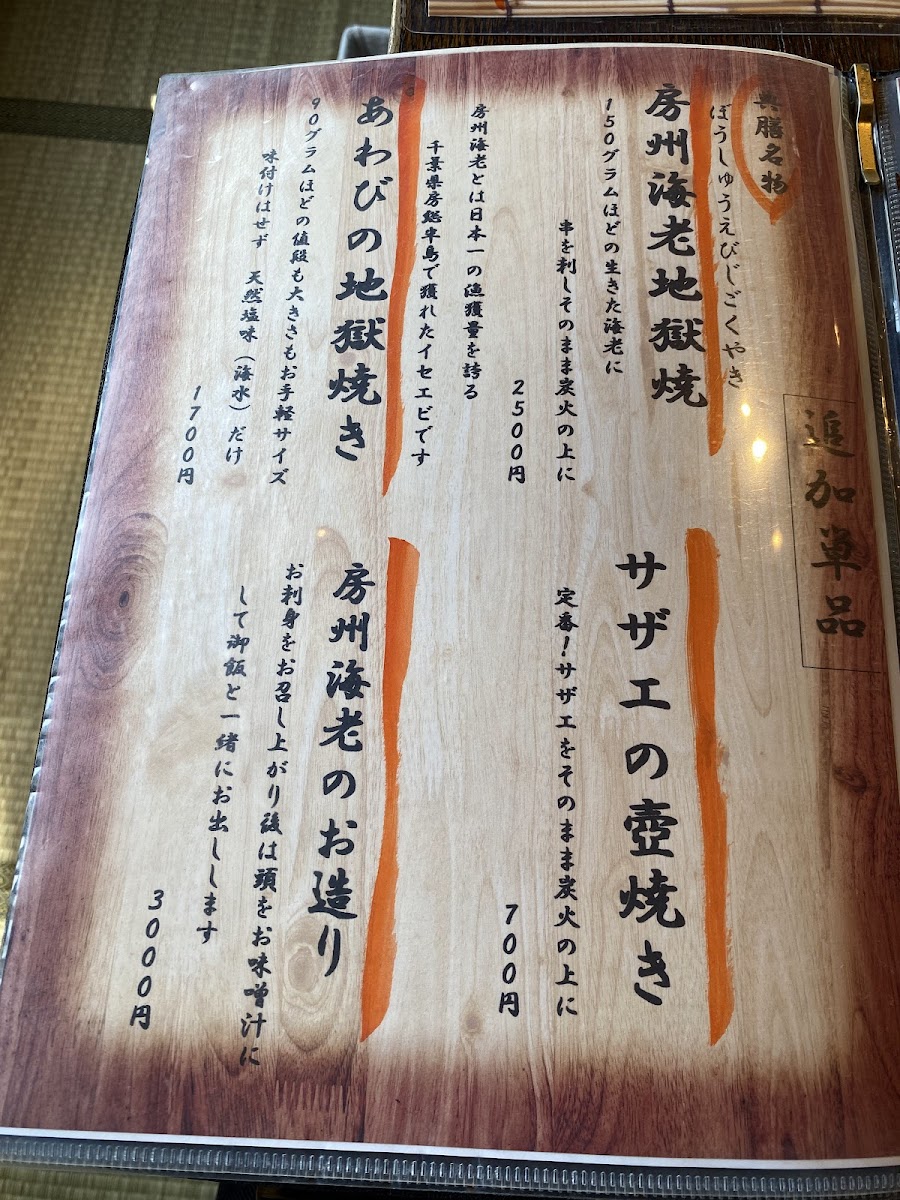 追加単品
膳名物
ぼうしゅうえびじごくやき
房州海老地獄焼
150グラムほどの生きた海老に
串を刺しそのまま炭火の上に
2500円
房州海老とは日本一の漁獲量を誇る
千葉県房総半島で獲れたイセエビです
あわびの地獄焼き
90グラムほどの値段も大きさもお手軽サイズ
味付けはせず 天然塩味(海水)だけ
1700円
サザエの壺焼き
定番!サザエをそのまま炭火の上に
700円
房州海老のお造り
お刺身をお召し上がり後は頭をお味噌汁に
して御飯と一緒にお出しします
3000円